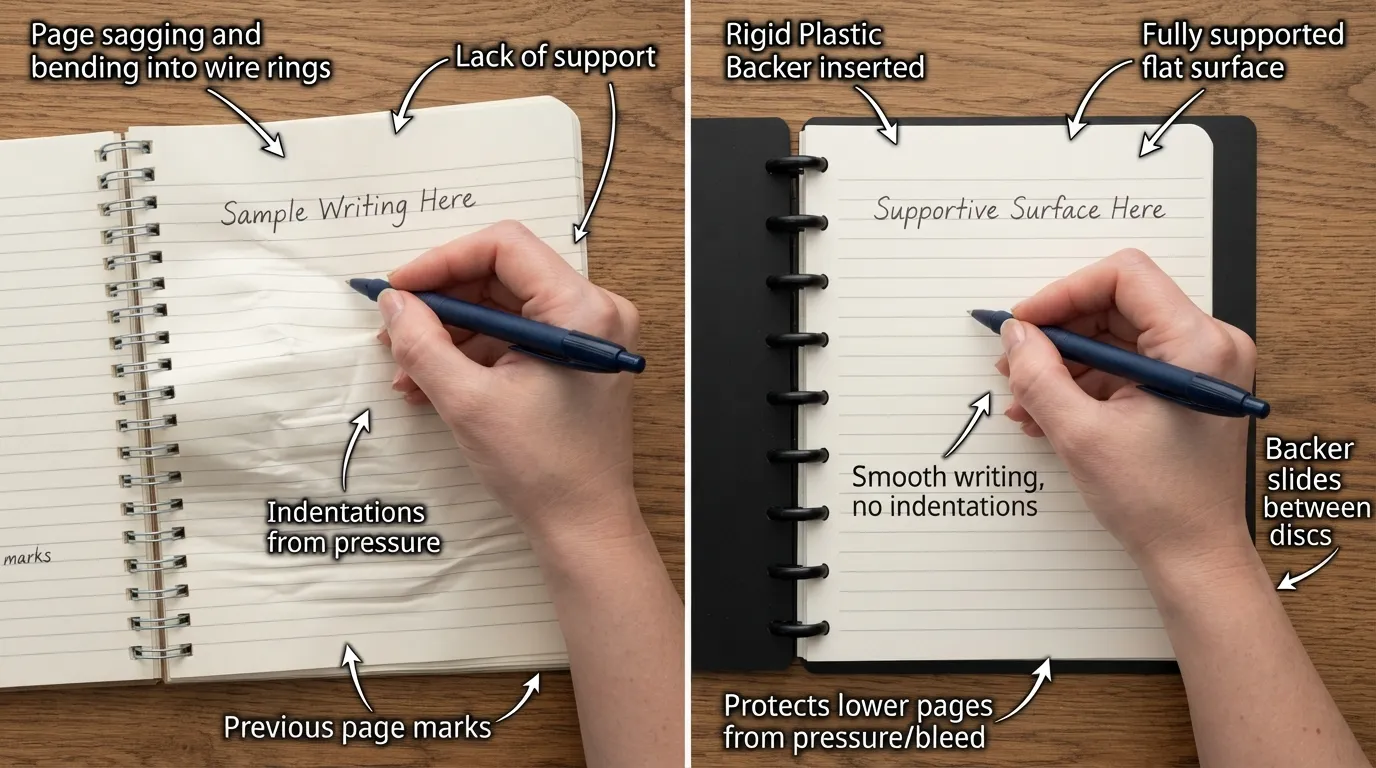 Page sagging and
bending into wire rings
Lack of support
Sample Writing Here
Indentations
from pressure
marks
Previous page marks
Rigid Plastic
Backer inserted
Fully supported
flat surface
Supportive Surface Here
Smooth writing,
no indentations
Backer
slides
between
discs
Protects lower pages
from pressure/bleed